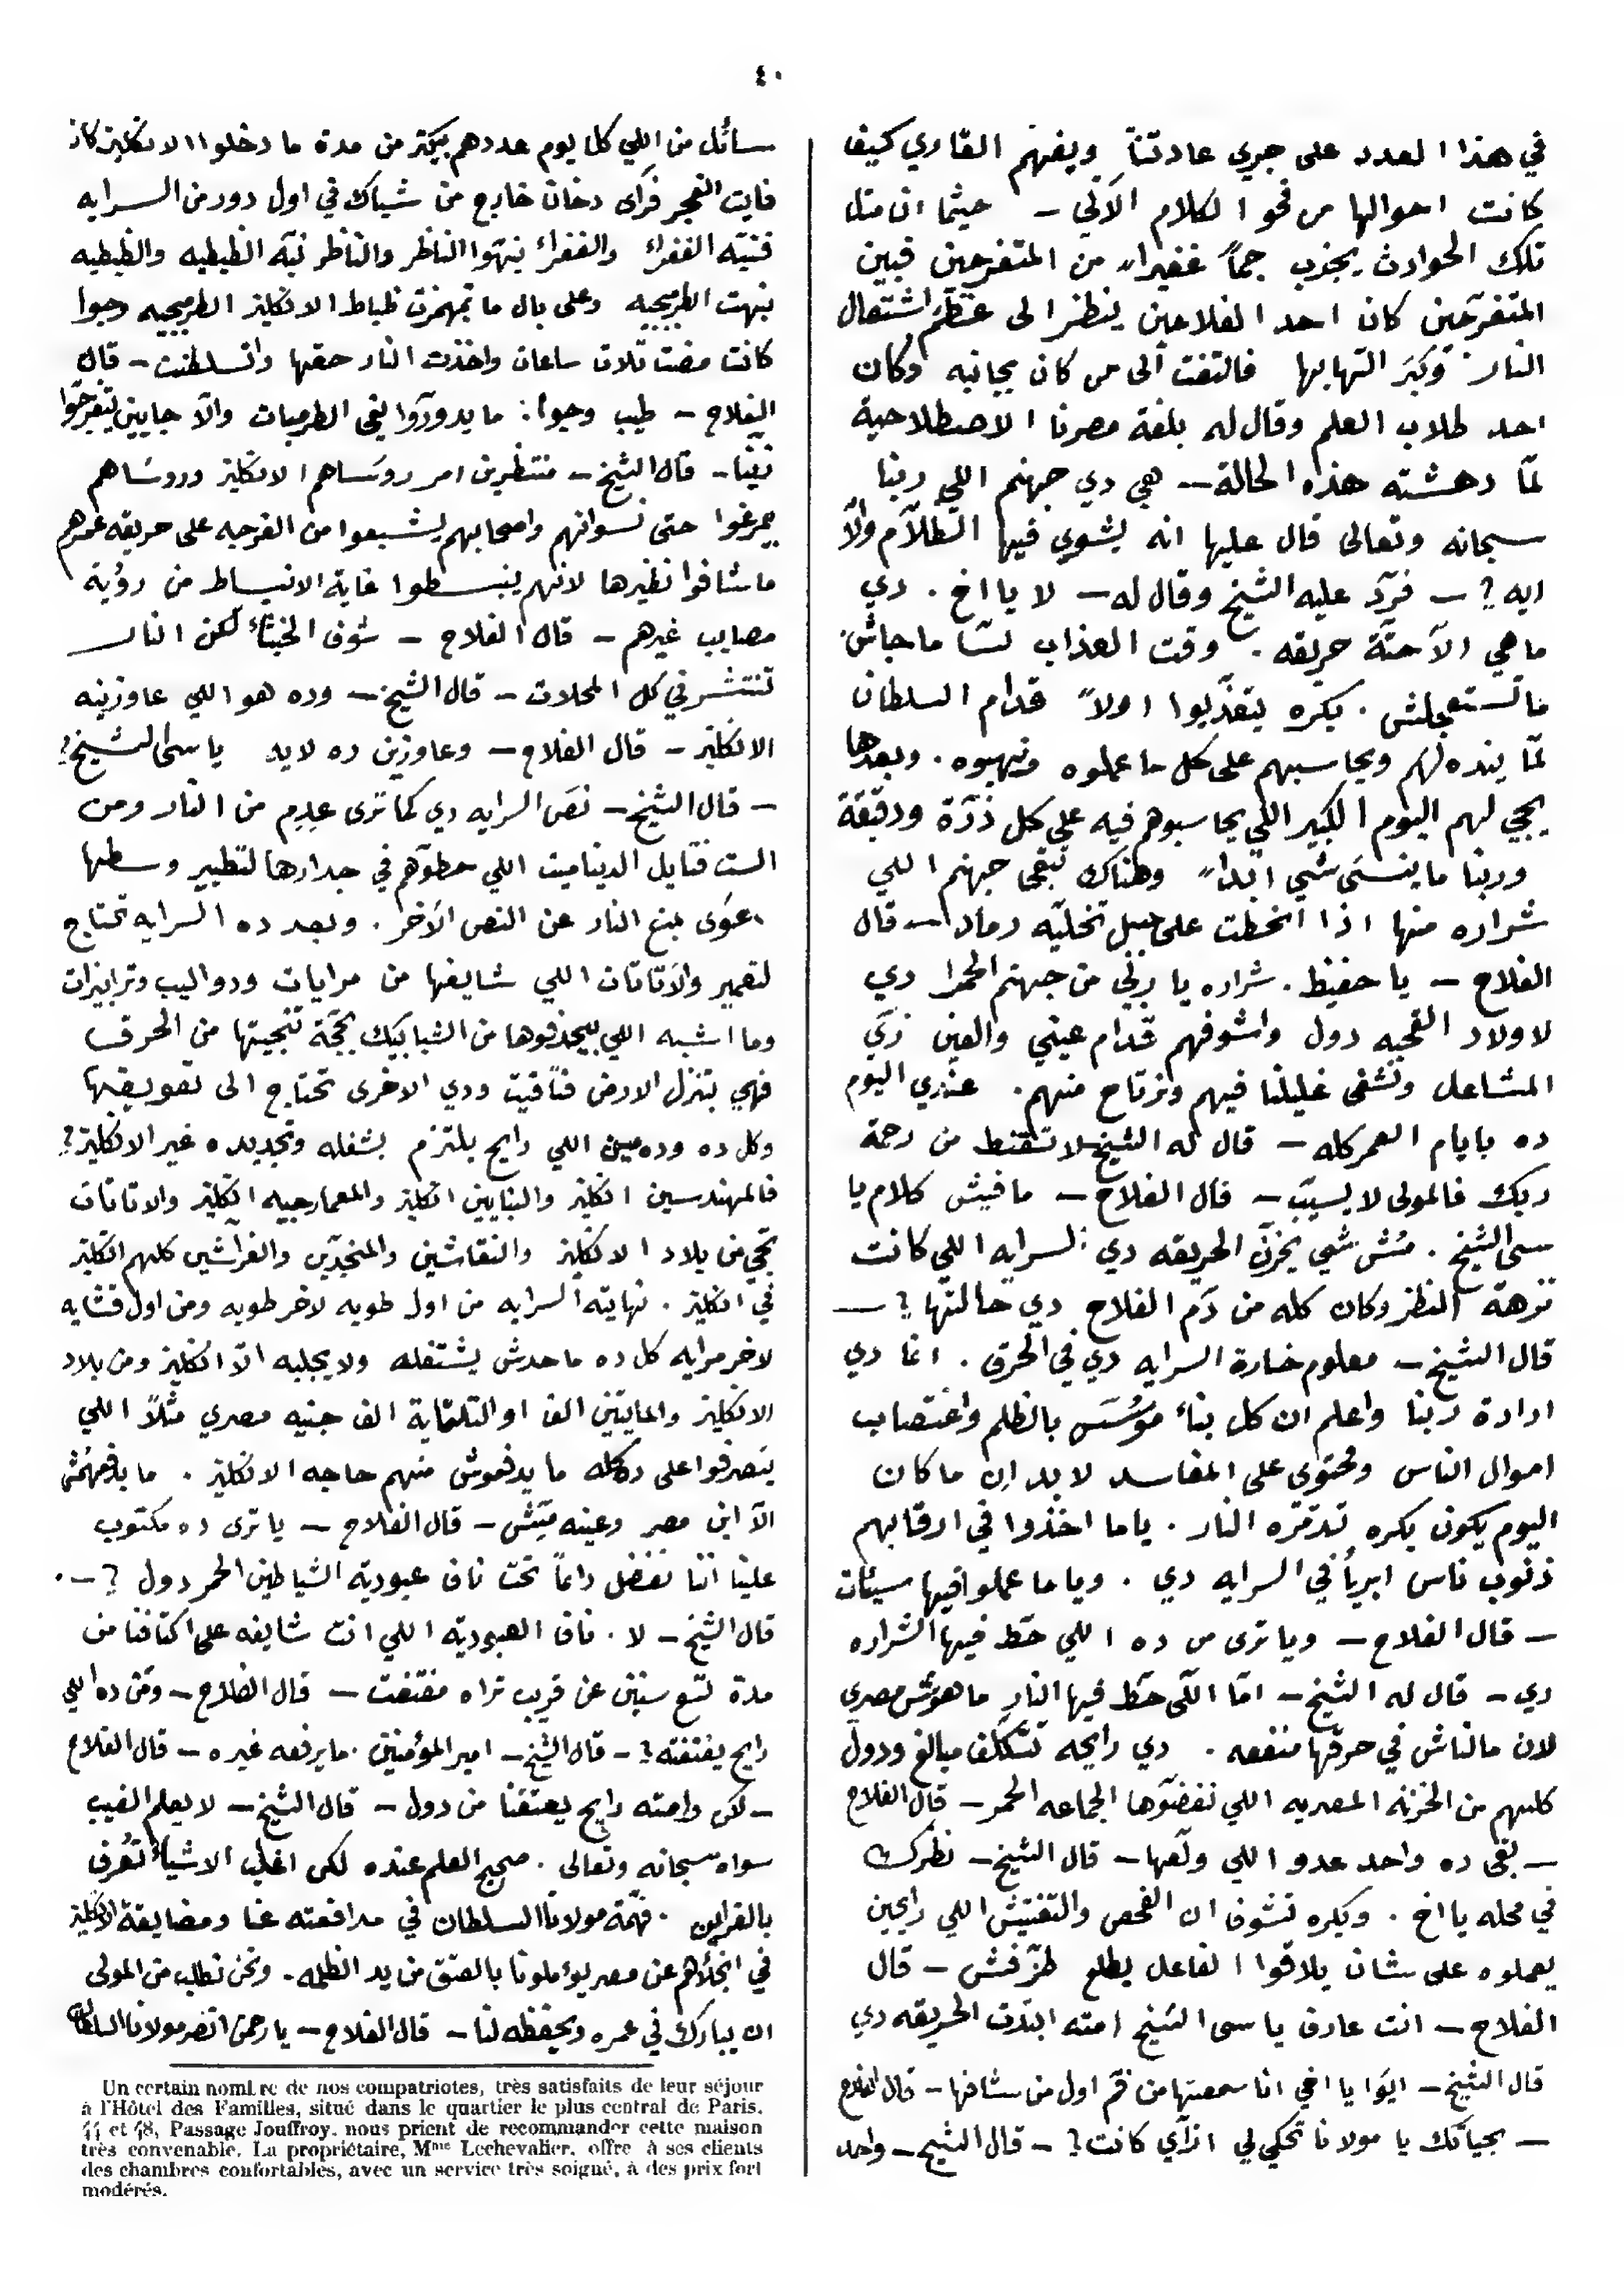 ٤٠
في هذا العدد على جري عادتنا ويفهم القاري كيف
كانت احوالها من فحو الكلام الآتي — حيثما ان مثل
تلك الحوادث يجذب جماً غفيراً من المتفرجين فبين
المتفرجين كان احد الفلاحين ينظر الى عظم اشتعال
النار وكبر التهابها فالتفت الى من كان بجانبه وكان
احد طلاب العلم وقال له بلغة مصرنا الاصطلاحية
لمّا دهشته هذه الحالة — هي دي جهنم اللي ربنا
سبحانه وتعالى قال عليها انه يشوي فيها الظلّام والّا
ايه ? — فردّ عليه الشيخ وقال له — لا يا اخ . دي
ما هي الّا حتّة حريقه . وقت العذاب لسّا ما جاش
ما تستعجلش . بكره يتعذّبوا اولاً قدام السلطان
لمّا ينده لهم ويحاسبهم على كل ما عملوه ونهبوه . وبعدها
يجي لهم اليوم الكبير اللي يحاسبوهم فيه على كل ذرّة ودقيقة
وربنا ما ينسى شي ابداً وهناك تبقى جهنم اللي
شراره منها اذا انحطت على جبل تخليه رماد — قال
الفلاح — يا حفيظ . شراره يا ربّي من جهنم الحمرا دي
لاولاد القحبه دول واشوفهم قدام عيني والعين زيّ
المشاعل ونشفى غليلنا فيهم ونرتاح منهم . عندي اليوم
ده بايام العمر كله — قال له الشيخ — لا تقنط من رحمة
ربك فالمولى لا يسيب — قال الفلاح — ما فيش كلام يا
سى الشيخ . مش شي يحزن الحريقه دي السرايه اللي كانت
نزهة النظر وكان كله من دم الفلاح دي حالتها ? —
قال الشيخ — معلوم خسارة السرايه دي في الحرق . انما دي
ارادة ربنا واعلم ان كل بناء مؤسّس بالظلم واغتصاب
اموال الناس ومحتوى على المفاسد لا بد ان ما كان
اليوم يكون بكره تدمّره النار . ياما اخذوا في ارقابهم
ذنوب ناس ابرياء في السرايه دي . وياما عملوا فيها سيئات
— قال الفلاح — ويا ترى من ده اللي حط فيها الشراره
دي — قال له الشيخ — امّا اللّى حط فيها النار ما هوش مصري
لان مالناش في حرقها منفعه . دي رايحه تتكلف مبالغ ودول
كلهم من الخزنه المصريه اللي نفضّوها الجماعه الحمر — قال الفلاح
— بقى ده واحد عدو اللي ولّعها — قال الشيخ — نظرك
في محله يا اخ . وبكره تشوف ان الفحص والتفتيش اللي رايحين
يعملوه على شان يلاقوا الفاعل يطلع طزّ فش — قال
الفلاح — انت عارف يا سى الشيخ امته ابتدت الحريقه دي
قال الشيخ — ايوا يا اخي انا سمعتها من فم اول من شافها — قال الفلاح
— بحياتك يا مولانا تحكي لي ازاي كانت ? — قال الشيخ — واحد
سائل من اللي كل يوم عددهم يكتر من مدة ما دخلوا الانكليز كان
فايت الفجر فرأى دخان خارج من شباك في اول دور من السرايه
فنبّه الغفراء والغفراء نبهوا الناظر والناظر نبّه الظبطيه والظبطيه
نبهت الطرمبجيه وعلى بال ما تمهزت ظباط الانكليز الطرمبجيه وجوا
كانت مضت تلات ساعات واخذت النار حقها واتسلطنت — قال
الفلاح — طيب وجوا : ما يدوّروا بقى الطرمبات والّا جايين يتفرّجوا
قال الشيخ — منتظرين امر روسَاهم الانكليز وروسَاهم
حتى نسوانهم واصحابهم يشبعوا من الفرجه على حريقه عمرهم
ما شافوا نظيرها لانهم ينبسطوا غاية الانبساط من رؤية
مصايب غيرهم — قال الفلاح — شوف الخبثاء لكن النار
تنتشر في كل المحلات — قال الشيخ — وده هو اللي عاوزينه
الانكليز — قال الفلاح — وعاوزين ده لايه يا سى الشيخ ?
— قال الشيخ — نص السرايه دي كما ترى عدم من النار ومن
الست قنابل الديناميت اللي حطوهم في جدارها لتطيير وسطها
دعوى بمنع النار عن النص الآخر . وبعد ده السرايه تحتاج
لتعمير والاتاتات اللي شايفها من مرايات ودواليب وترابيزات
وما اشبه اللي بيحدفوها من الشبابيك بحجّة تنجيتها من الحرق
فهي بتنزل الارض فتافيت ودي الاخرى تحتاج الى تعويضها
وكل ده وده مين اللي رايح يلتزم بشغله وتجديده غير الانكليز ?
فالمهندسين انكليز والبنايين انكليز والمعمارجيه انكليز والاتاتات
تجي من بلاد الانكليز والنقاشين والمنجدين والفراشين كلهم انكليز
في انكليز . نهايته السرايه من اول طوبه لاخر طوبه ومن اول قشايه
لاخر مرايه كل ده ما حدش يشتغله ولا يجلبه الّا انكليز ومن بلاد
الانكليز والمايتين الف او التلتماية الف جنيه مصري مثلاً اللي
ينصرفوا على ده كله ما يدفعوش منهم حاجه الانكليز . ما يدفعهمش
الّا ابن مصر وعينه — قال الفلاح — يا ترى ده مكتوب
علينا اننا نفضل دائماً تحت ناف عبودية الشياطين الحمر دول ? —
قال الشيخ — لا . ناف العبودية اللي انت شايفه على اكتافنا من
مدة تسع سنين عن قريب تراه مفتفت — قال الفلاح — ومن ده اللي
رايح يفتفته ? — قال الشيخ — امير المؤمنين . ما يرفعه غيره — قال الفلاح
— لكن وامته رايح يعتقنا من دول — قال الشيخ — لا يعلم الغيب
سواه سبحانه وتعالى . صحيح العلم عنده لكن اغلب الاشياء تُعرف
بالقراين . فهمّة مولانا السلطان في مدافعته عنا ومضايقة الانكليز
في انجلائهم عن مصر يؤملونا بالعتق من يد الظلمه . ونحن نطلب من المولى
ان يبارك في عمره ويحفظه لنا — قال الفلاح — يا رحمن انصر مولانا السلطان
Un certain nombre de nos compatriotes, très satisfaits de leur séjour
à l'Hôtel des Familles, situé dans le quartier le plus central de Paris.
44 et 48, Passage Jouffroy. nous prient de recommander cette maison
très convenable. La propriétaire, Mme Lechevalier. offre à ses clients
des chambres confortables, avec un service très soigné, à des prix fort
modérés.